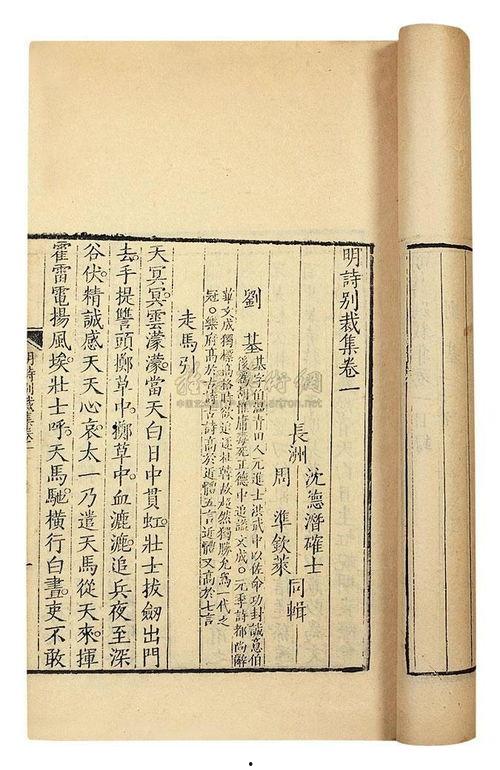 明詩別裁集卷一
長洲
沈德潛確士
周 準欽萊
同輯
劉 基
基字伯溫青田人元進士洪武中以佐命功封誠意伯
後為胡惟庸毒死正德中追諡文成○元季詩都尚辭
華文成獨標高格時欲追逐杜韓故超然獨勝允為一代之
冠○樂府高於古詩古詩高於近體五言近體又高於七言
走馬引
天冥冥雲濛濛當天白日中貫虹壯士拔劒出門
去手提讐頭擲草中擲草中血漉漉追兵夜至深
谷伏精誠感天天心哀太一乃遣天馬從天來揮
霍雷電揚風埃壯士呼天馬馳橫行白晝吏不敢
明詩別裁集卷一
一